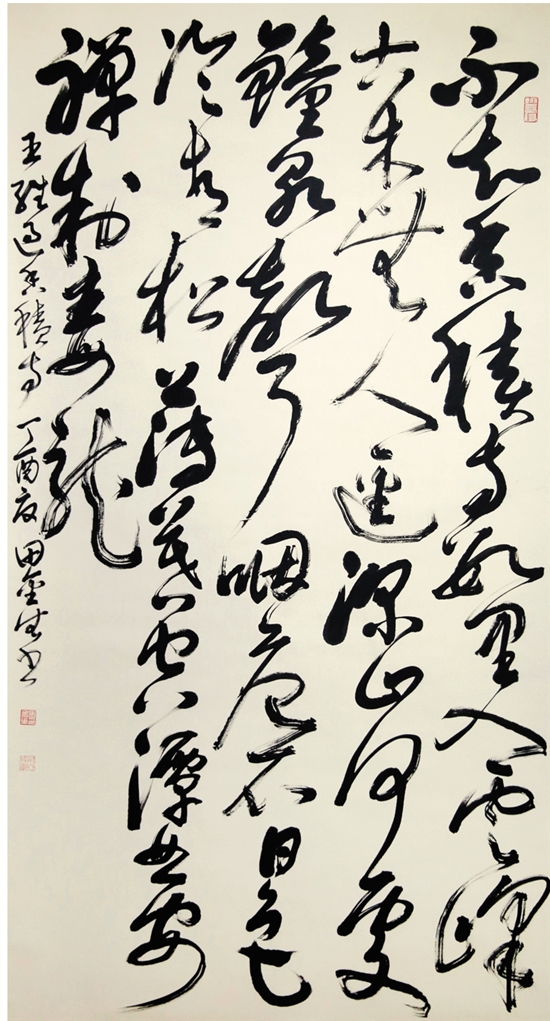 不知香積寺數里入雲峰
古木無人逕深山何處
鐘泉聲咽危石日色
冷青松薄暮空潭曲安
禪制毒龍
王維過香積寺 丁酉夏 田生书